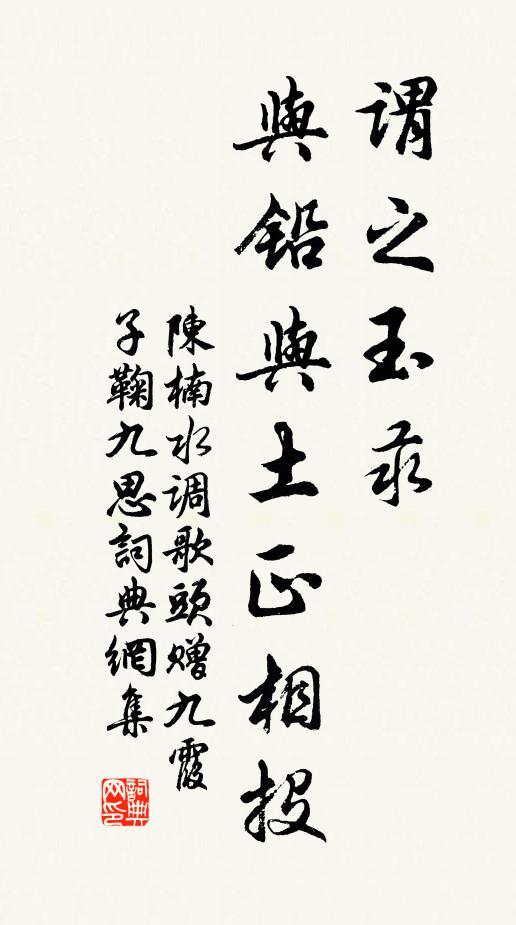 謂之玉汞
與鉛與土正相投
陳楠水调歌頭赠九霞
子鞠九思詞典網集
詞典网印